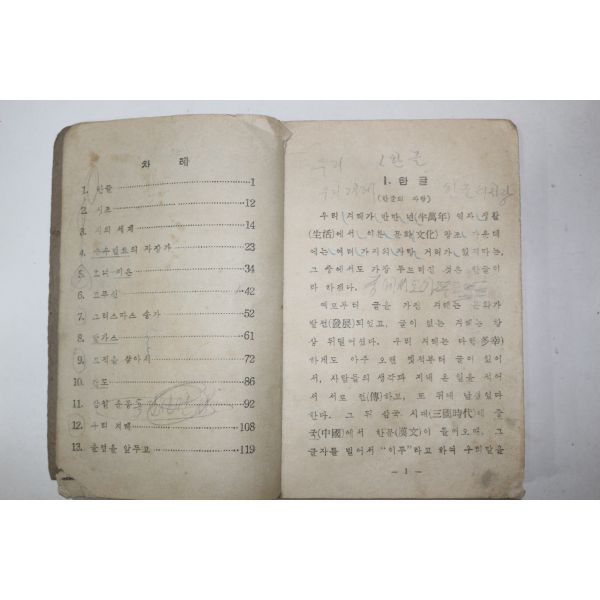 차 례
1. 한글 1
2. 시조 12
3. 시의 세계 14
4. 의 자장가 23
5. 34
6. 고무신 42
7. 크리스마스 송가 52
8. 61
9. 을 찾아서 72
10. 86
11. 암활 운동 92
12. 우리 겨레 108
13. 졸업을 앞두고 119
우리 1 한글
1. 한글
(한글의 자랑)
우리 겨레가 반만 년(半萬年) 역사 생활
(生活)에서 이룬 문화(文化) 창조 가운데
에는 여러 가지의 자랑 거리가 있지마는,
그 중에서도 가장 뚜드러진 것은 한글이
라 하겠다.
예로부터 글을 가진 겨레는 문화가
발전(發展)되었고, 글이 없는 겨레는 항
상 뒤떨어졌다. 우리 겨레는 다행(多幸)
하게도 아주 오랜 옛적부터 글이 있어
서, 사람들의 생각과 지내 온 일을 적어
서 서로 전(傳)하고, 또 뒤에 남겼었다
한다. 그 뒤 삼국 시대(三國時代)에 중
국(中國)에서 한문(漢文)이 들어오매, 그
글자를 빌어서 "이두"라고 하여 우리말을
— 1 —